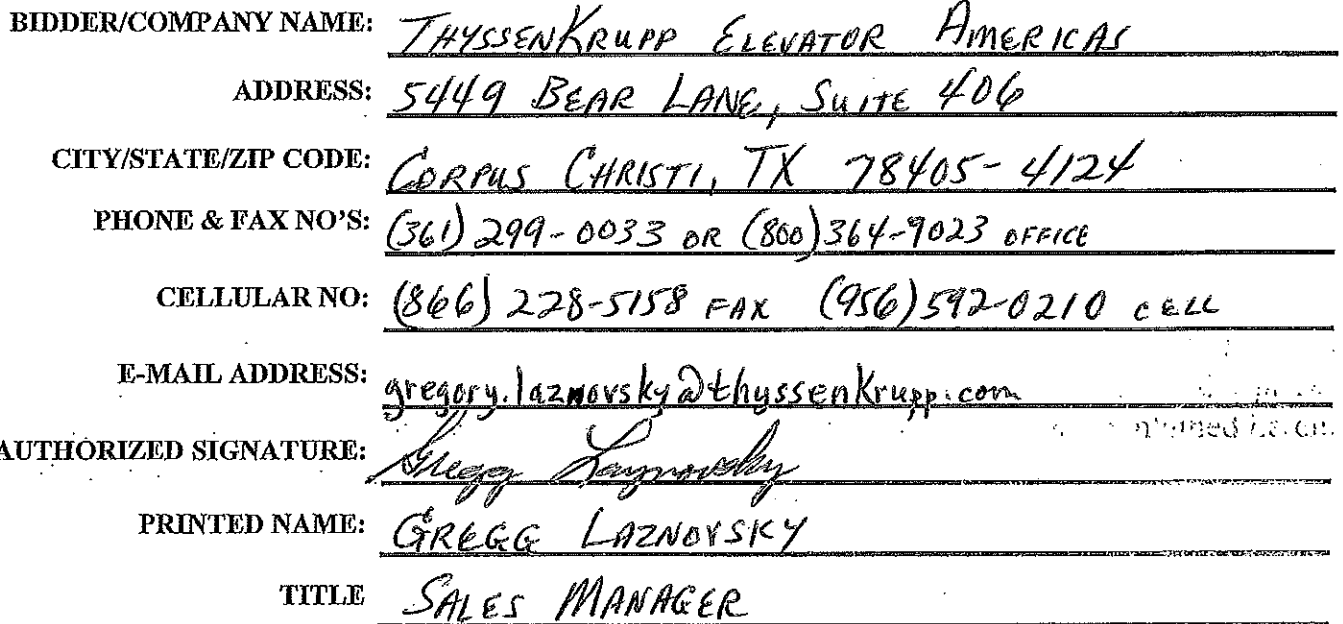 BIDDER/COMPANY NAME: THYSSENKRUPP ELEVATOR AMERICAS
ADDRESS: 5449 BEAR LANE, SUITE 406
CITY/STATE/ZIP CODE: CORPUS CHRISTI, TX 78405-4124
PHONE & FAX NO'S: (361) 299-0033 OR (800) 364-9023 OFFICE
CELLULAR NO: (866) 228-5158 FAX (956) 592-0210 CELL
E-MAIL ADDRESS: gregory.laznovsky@thyssenkrupp.com
AUTHORIZED SIGNATURE: Gregg Laznovsky
PRINTED NAME: GREGG LAZNOVSKY
TITLE SALES MANAGER